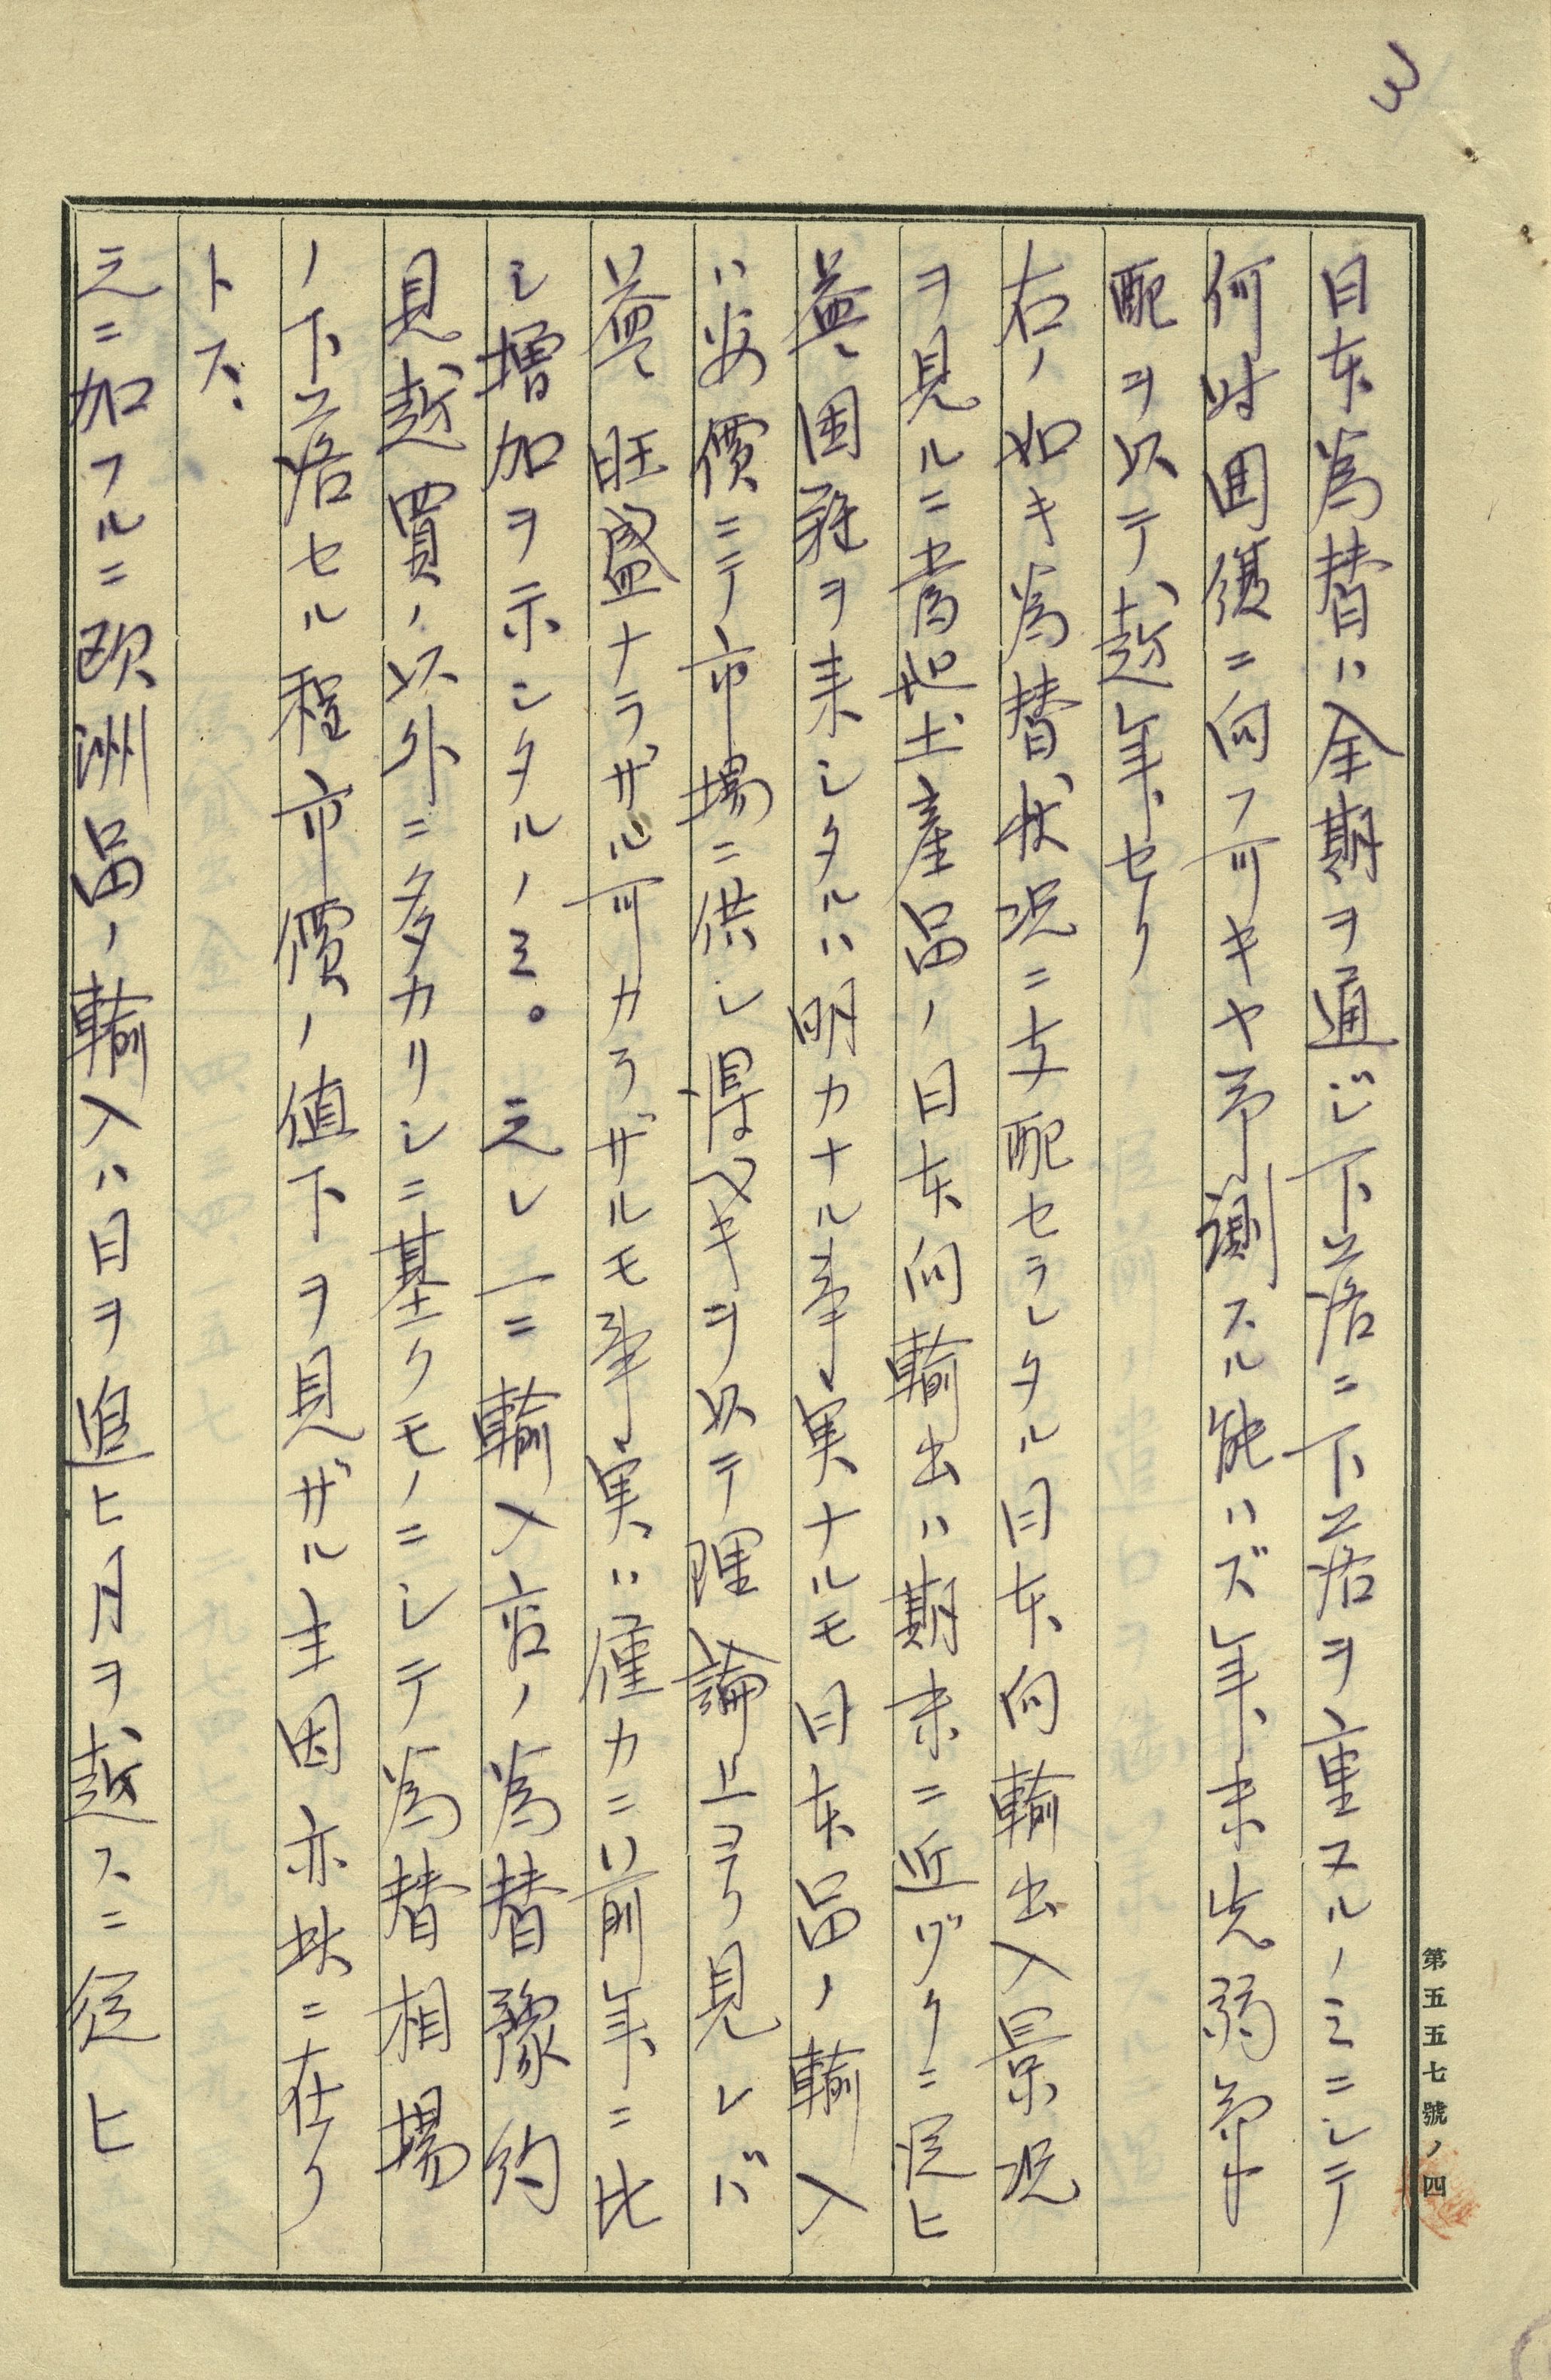 3
日本為替ハ全期ヲ通ジ下落ニ下落ヲ重ヌルノミニシテ
何時囬復ニ向フ可キヤ予測スル能ハズ年末先弱気
配ヲ以テ越年セリ
右ノ如キ為替状況ニ支配セラレタル日本向輸出入景況
ヲ見ルニ当地土産品ノ日本向輸出ハ期末ニ近ヅクニ従ヒ
益〻困難ヲ来シタルハ明カナル事実ナルモ日本品ノ輸入
ハ安價ニテ市場ニ供シ得ベキヲ以テ理論上ヨリ見レバ
益〻旺盛ナラザル可カラザルモ事実ハ僅カニ前年ニ比
シ増加ヲ示シタルノミ。之レ一ニ輸入商ノ為替豫約
見越買ノ以外ニ多カリシニ基クモノニシテ為替相場
ノ下落セル程市價ノ値下ヲ見ザル主因亦玆ニ在リ
トス、
之ニ加フルニ欧洲品ノ輸入ハ日ヲ追ヒ月ヲ越スニ従ヒ
第五五七號ノ四